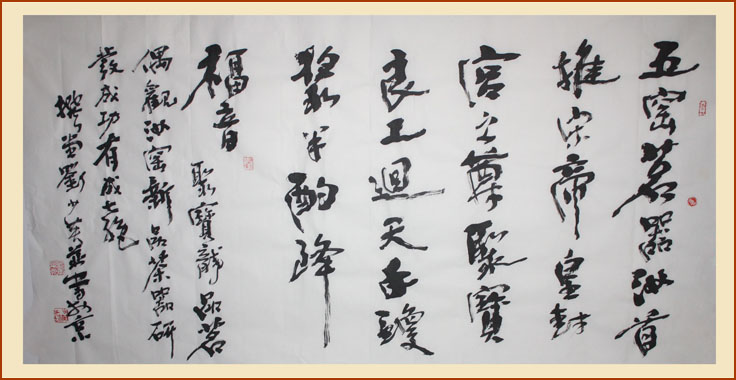 五窑茗器汝首
推宋帝皇封
宫之尊聚寶
良工迴天手瓊
漿半酌降
福音
聚寶龍品茗
偶觀汝窑新品茶器研
發成功有感七绝
堂劉少英並書於京